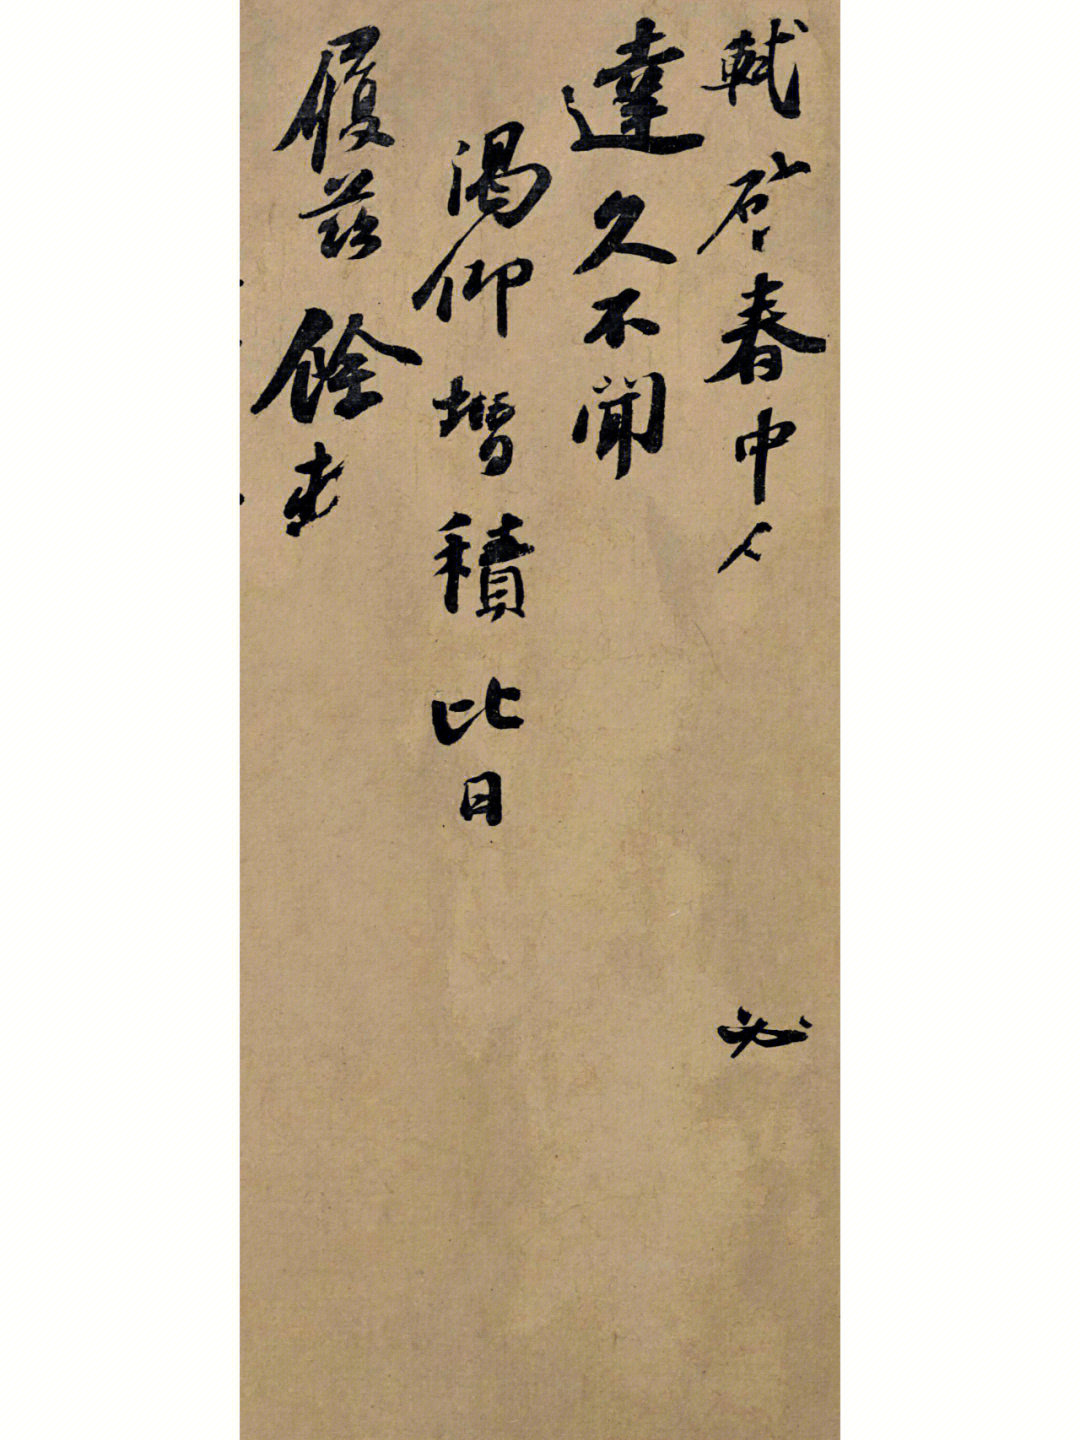 軾啓春中人必
達久不聞
渴仰增積比日
履茲餘